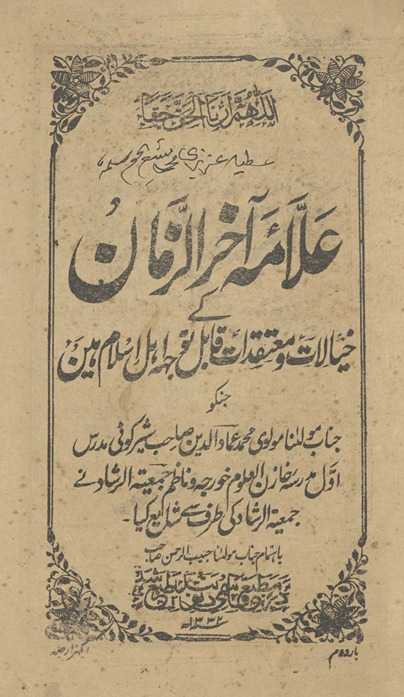 اللهم ارنا الحق حقا
عطیہ عزیزی محمد شفیع
علامہ آخر الزمان
کے
خیالات و معتقدات قابل توجہ اہل اسلام ہین
جنکو
جناب مولٰنا مولوی محمد عماد الدین صاحب شیر کوٹی مدرس
اول مدرسہ خازن العلوم خورجہ و ناظم جمعیۃ الرشاد نے
جمعیۃ الرشاد کی طرف سے شائع کیا۔
باہتمام جناب مولٰنا حبیب الرحمن صاحب
مطبع قاسمی دیوبند
۱۳۳۲ھ
بار دوم